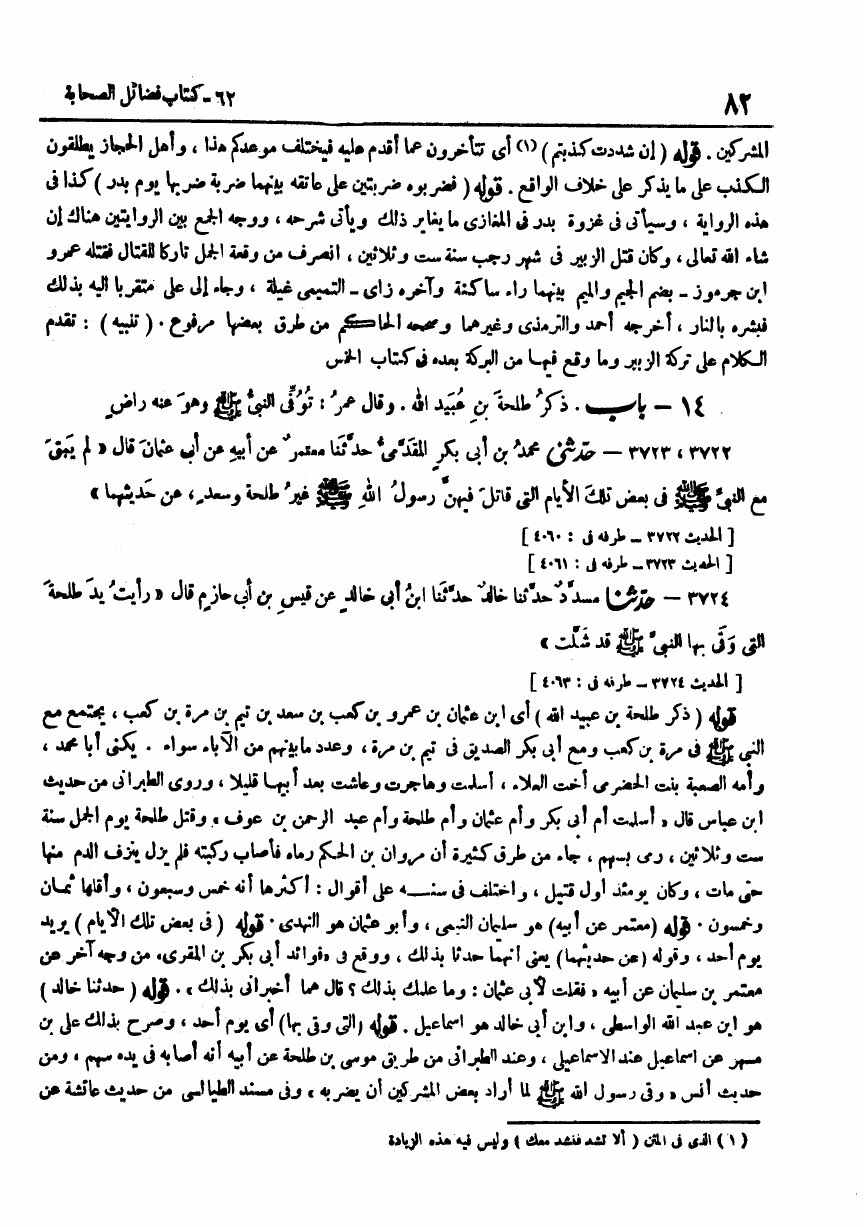 ٨٢
٦٢ - كتاب فضائل الصحابة
المشركين . قوله ( إن شددت كذبتم ) (١) أى تتأخرون عما أقدم عليه فيختلف موعدكم هذا ، وأهل الحجاز يطلقون
الكذب على ما يذكر على خلاف الواقع . قوله ( فضربوه ضربتين على عاتقه بينهما ضربة ضربها يوم بدر ) كذا فى
هذه الرواية ، وسيأتى فى غزوة بدر فى المغازى ما يغاير ذلك ويأتى شرحه ، ووجه الجمع بين الروايتين هناك إن
شاء الله تعالى ، وكان قتل الزبير فى شهر رجب سنة ست وثلاثين ، انصرف من وقعة الجمل تاركا للقتال فقتله عمرو
ابن جرموز ـ بضم الجيم والميم بينهما راء ساكنة وآخره زاى ـ التميمى غيلة ، وجاء إلى على متقربا اليه بذلك
فبشره بالنار ، أخرجه أحمد والترمذى وغيرهما وصححه الحاكم من طرق بعضها مرفوع . ( تنبيه ) : تقدم
الكلام على تركة الزبير وما وقع فيها من البركة بعده فى كتاب الخمس
١٤ - باب . ذكرُ طلحةَ بنِ عُبَيد الله . وقال عمرُ : تُوُفِّىَ النبىُّ ﷺ وهوَ عنه راضٍ
٣٧٢٢ ، ٣٧٢٣ - حدّثنى محمدُ بن أبى بكرٍ المقدَّمىُّ حدَّثَنا معتمرٌ عن أبيهِ عن أبى عثمانَ قال « لم يَبقَ
مع النبىِّ ﷺ فى بعض تلكَ الأيام التى قاتلَ فيهنَّ رسولُ اللهِ ﷺ غيرُ طلحة وسعدٍ ، عن حَديثهما »
[ الحديث ٣٧٢٢ ـ طرفه فى : ٤٠٦٠ ]
[ الحديث ٣٧٢٣ ـ طرفه فى : ٤٠٦١ ]
٣٧٢٤ - حدّثنا مسدَّدٌ حدَّثنا خالدٌ حدَّثَنا ابنُ أبى خالدٍ عن قيسِ بن أبى حازمٍ قال « رأيتُ يدَ طلحةَ
التى وَقَى بها النبىَّ ﷺ قد شَلَّت »
[ الحديث ٣٧٢٤ ـ طرفه فى : ٤٠٦٣ ]
قوله ( ذكر طلحة بن عبيد الله ) أى ابن عثمان بن عمرو بن كعب بن سعد بن تيم بن مرة بن كعب ، يجتمع مع
النبى ﷺ فى مرة بن كعب ومع أبى بكر الصديق فى تيم بن مرة ، وعدد ما بينهم من الآباء سواء . يكنى أبا محمد ،
وأمه الصعبة بنت الحضرمى أخت العلاء ، أسلمت وهاجرت وعاشت بعد أبيها قليلا ، وروى الطبرانى من حديث
ابن عباس قال « أسلمت أم أبى بكر وأم عثمان وأم طلحة وأم عبد الرحمن بن عوف » وقتل طلحة يوم الجمل سنة
ست وثلاثين ، رمى بسهم ، جاء من طرق كثيرة أن مروان بن الحكم رماه فأصاب ركبته فلم يزل ينزف الدم منها
حتى مات ، وكان يومئذ أول قتيل ، واختلف فى سنه على أقوال : أكثرها أنه خمس وسبعون ، وأقلها ثمان
وخمسون . قوله ( معتمر عن أبيه ) هو سليمان التيمى ، وأبو عثمان هو النهدى . قوله ( فى بعض تلك الأيام ) يريد
يوم أحد ، وقوله ( عن حديثهما ) يعنى أنهما حدثا بذلك ، ووقع فى « فوائد أبى بكر بن المقرى » من وجه آخر عن
معتمر بن سليمان عن أبيه « فقلت لأبى عثمان : وما علمك بذلك ؟ قال هما أخبرانى بذلك » . قوله ( حدثنا خالد )
هو ابن عبد الله الواسطى ، وابن أبى خالد هو اسماعيل . قوله ( التى وقى بها ) أى يوم أحد ، وصرح بذلك على بن
مسهر عن اسماعيل عند الاسماعيلى ، وعند الطبرانى من طريق موسى بن طلحة عن أبيه أنه أصابه فى يده سهم ، ومن
حديث أنس « وقى رسول الله ﷺ لما أراد بعض المشركين أن يضربه » وفى مسند الطيالسى من حديث عائشة عن
( ١ ) الذى فى المتن ( ألا تشد فنشد معك ) وليس فيه هذه الزيادة